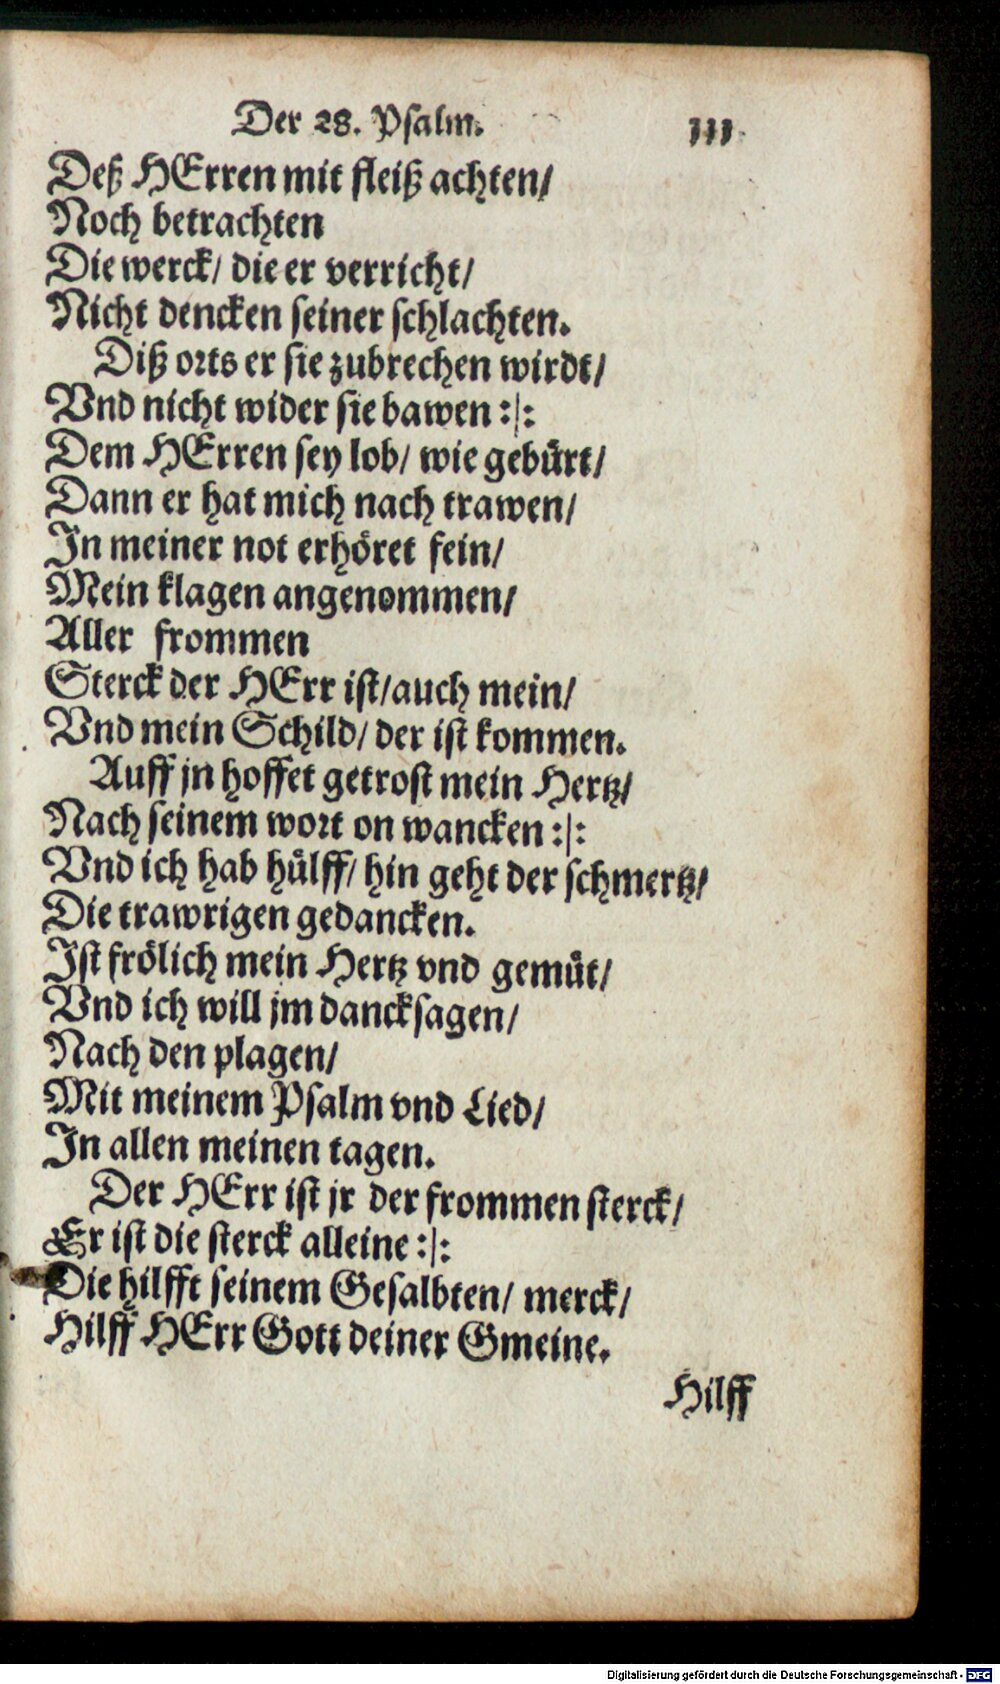 Der 28. Psalm. 111.
Deß HErren mit fleiß achten/
Noch betrachten
Die werck/ die er verricht/
Nicht dencken seiner schlachten.
Diß orts er sie zubrechen wirdt/
Vnd nicht wider sie bawen :|:
Dem HErren sey lob/ wie gebuͤrt/
Dann er hat mich nach trawen/
In meiner not erhoͤret fein/
Mein klagen angenommen/
Aller frommen
Sterck der HErr ist/auch mein/
Vnd mein Schild/ der ist kommen.
Auff jn hoffet getrost mein Hertz/
Nach seinem wort on wancken :|:
Vnd ich hab huͤlff/ hin geht der schmertz/
Die trawrigen gedancken.
Ist froͤlich mein Hertz vnd gemuͤt/
Vnd ich will jm dancksagen/
Nach den plagen/
Mit meinem Psalm vnd Lied/
In allen meinen tagen.
Der HErr ist jr der frommen sterck/
Er ist die sterck alleine :|:
Die hilfft seinem Gesalbten/ merck/
Hilff HErr Gott deiner Gmeine.
Hilff
Digitalisierung gefördert durch die Deutsche Forschungsgemeinschaft - DFG